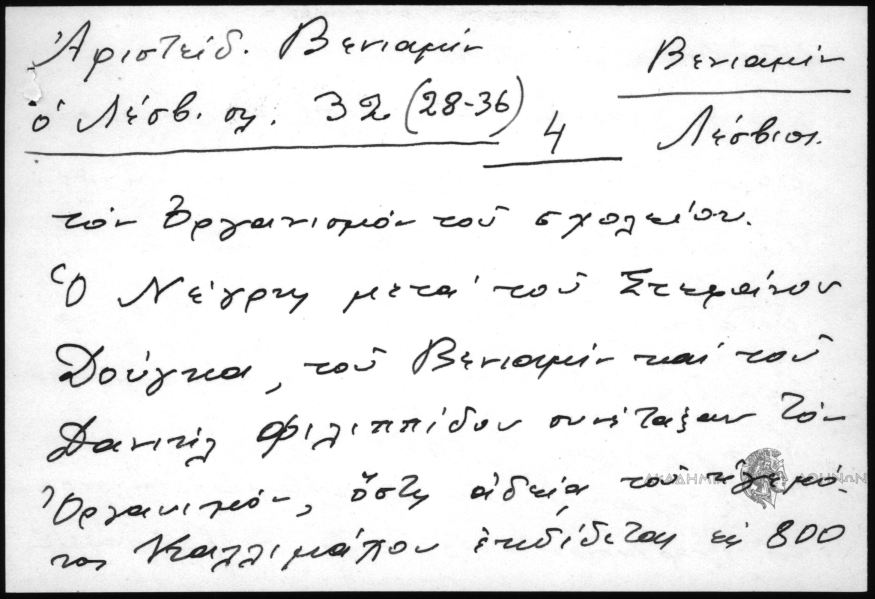 Ἀριστείδ. Βενιαμίν
ὁ Λέσβ. σελ. 32 (28-36)
4
Βενιαμίν
Λέσβιος.
τὸν Ὀργανισμόν τοῦ σχολείου.
Ὁ Νέγρης μετά τοῦ Στεφάνου
Δούγκα, τοῦ Βενιαμίν καί τοῦ
Δανιήλ Φιλιππίδου συνέταξαν τόν
Ὀργανισμόν, ὅστις ἀδείᾳ τοῦ ἡγεμό-
νος Καλλιμάχου ἐκδίδεται εἰς 800
ΑΚΑΔΗΜΙΑ ΑΘΗΝΩΝ